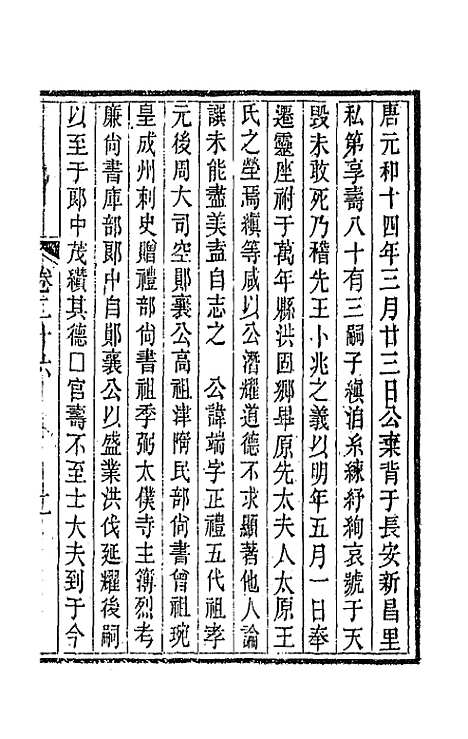 唐元和十四年三月廿三日公棄背于長安新昌里
私第享壽八十有三嗣子縝洎糸練紓絢哀號于天
毀未敢死乃稽先王卜兆之義以明年五月一日奉
遷靈座祔于萬年縣洪固鄉畢原先太夫人太原王
氏之塋焉縝等咸以公潛耀道德不求顯著他人論
譔未能盡美盍自志之　公諱端字正禮五代祖孝
元後周大司空鄖襄公高祖津隋民部尚書曾祖琬
皇成州刺史贈禮部尚書祖季弼太僕寺主簿烈考
廉尚書庫部郞中自鄖襄公以盛業洪伐延耀後嗣
以至于郞中茂纘其德口官壽不至士大夫到于今
卷三十六